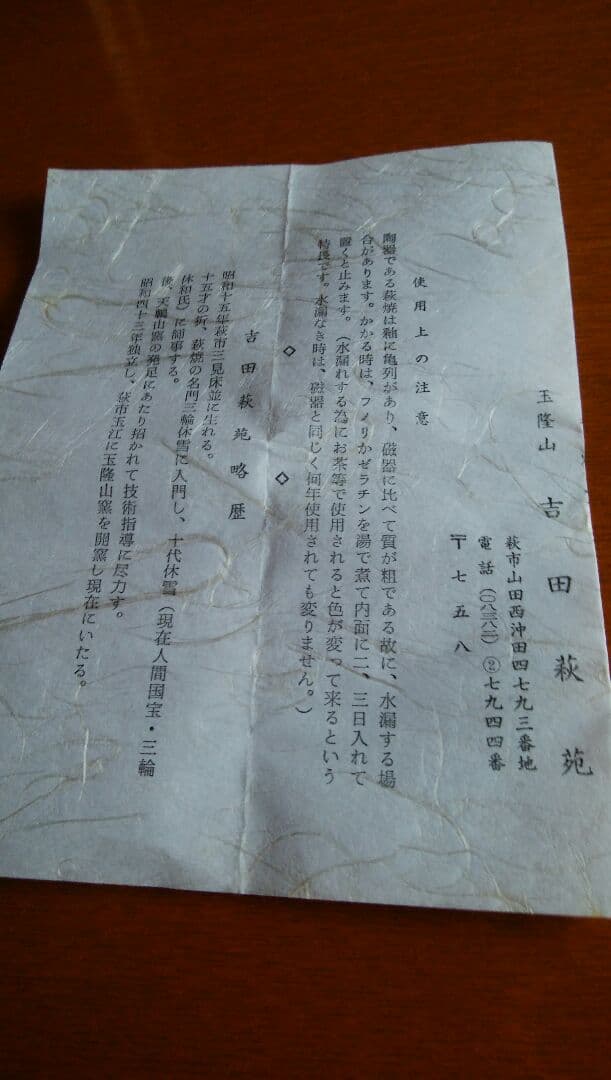 玉隆山 吉田萩苑
萩市山田西沖田四七九三番地
電話(〇八三八二)②七九四四番
〒七五八
使用上の注意
陶器である萩焼は釉に亀列があり、磁器に比べて質が粗である故に、水漏する場
合があります。かかる時は、フノリかゼラチンを湯で煮て内面に二、三日入れて
置くと止みます。(水漏れする為にお茶等で使用されると色が変って来るという
特長です。水漏なき時は、磁器と同じく何年使用されても変りません。)
◇ ◇
吉田萩苑略歴
昭和十五年萩市三見床並に生れる。
十五才の折、萩焼の名門三輪休雪に入門し、十代休雪(現在人間国宝・三輪
休和氏)に師事する。
後、天鵬山窯の発足にあたり招かれて技術指導に尽力す。
昭和四十三年独立し、萩市玉江に玉隆山窯を開窯し現在にいたる。